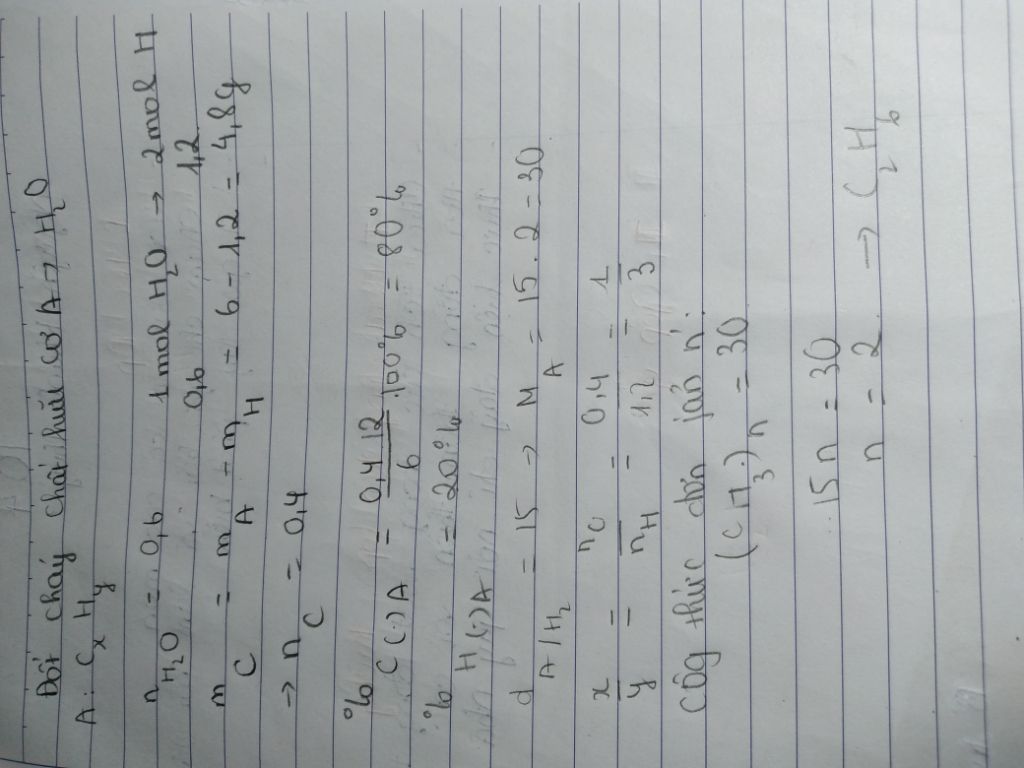 Đốt cháy chất hữu cơ A → H₂O
A: CxHy
nH₂O = 0,6 1 mol H₂O → 2 mol H
0,6 1,2
mC = mA - mH = 6 - 1,2 = 4,8g
→ nC = 0,4
% C(-)A = 0,4.12/6 .100% = 80%
% H(-)A = 20%
dA/H₂ = 15 → MA = 15.2 = 30
x/y = nC/nH = 0,4/1,2 = 1/3
Côg thức đơn jản n:
(CH₃)n = 30
15n = 30
n = 2 → C₂H₆